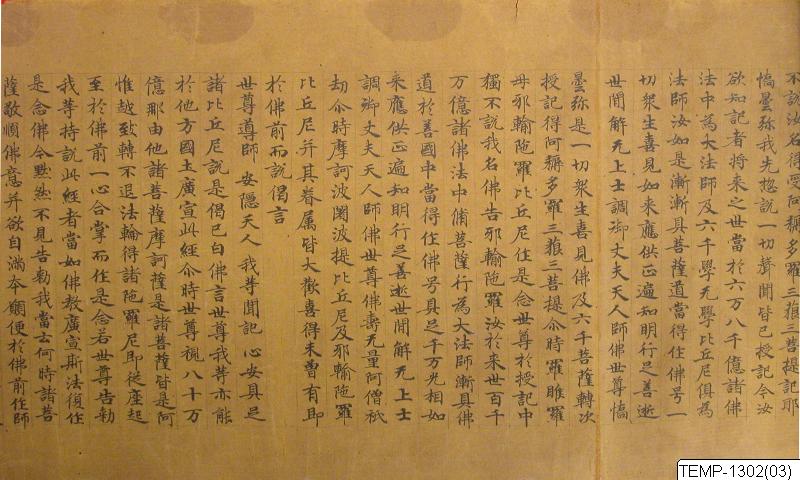 不說汝名得受阿耨多羅三藐三菩提記耶
憍曇弥我先揔說一切聲聞皆已授記今汝
欲知記者将来之世當於六万八千億諸佛
法中為大法師及六千學无學比丘尼俱為
法師汝如是漸漸具菩薩道當得作佛号一
切衆生喜見如来應供正遍知明行足善逝
世間解无上士調御丈夫天人師佛世尊憍
曇弥是一切衆生喜見佛及六千菩薩轉次
授記得阿耨多羅三藐三菩提尒時羅睺羅
母耶輸陁羅比丘尼作是念世尊於授記中
獨不說我名佛告耶輸陁羅汝於来世百千
万億諸佛法中脩菩薩行為大法師漸具佛
道於善國中當得作佛号具足千万光相如
来應供正遍知明行足善逝世間解无上士
調御丈夫天人師佛世尊佛壽无量阿僧祇
劫尒時摩訶波闍波提比丘尼及耶輸陁羅
比丘尼并其眷属皆大歡喜得未曾有即
於佛前而說偈言
世尊導師 安隱天人 我等聞記 心安具足
諸比丘尼說是偈已白佛言世尊我等亦能
於他方國土廣宣此經尒時世尊視八十万
億那由他諸菩薩摩訶薩是諸菩薩皆是阿
惟越致轉不退法輪得諸陁羅尼即從座起
至於佛前一心合掌而作是念若世尊告勅
我等持說此經者當如佛教廣宣斯法復作
是念佛今黙然不見告勅我當云何時諸菩
薩敬順佛意并欲自滿本願便於佛前作師
TEMP-1302(03)